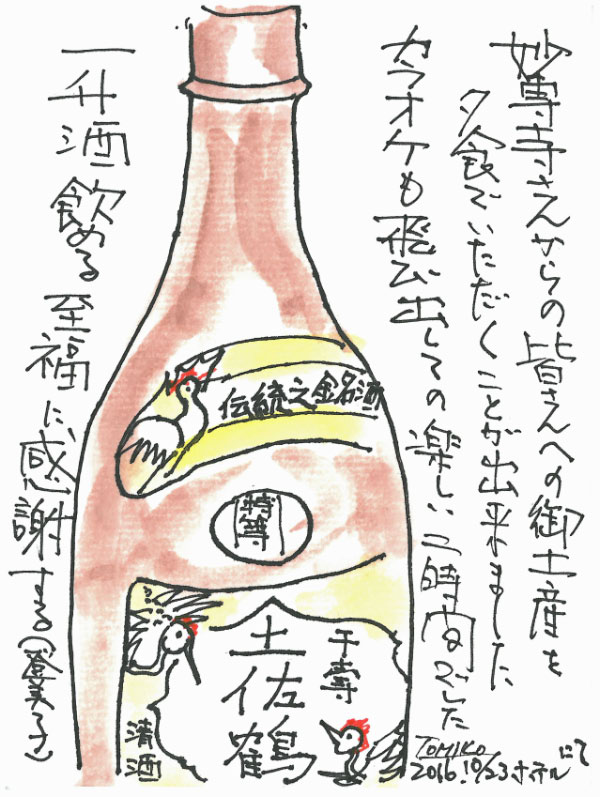 妙尊寺さんからの皆さんへの御土産を
夕食でいただくことが出来ました
カラオケも飛び出しての楽しい二時間でした
一升酒飲める至福に感謝する(登美子)
伝統之銘酒
特等
千寿
土佐鶴
清酒
TOMIKO
2016.10/23ホテルにて